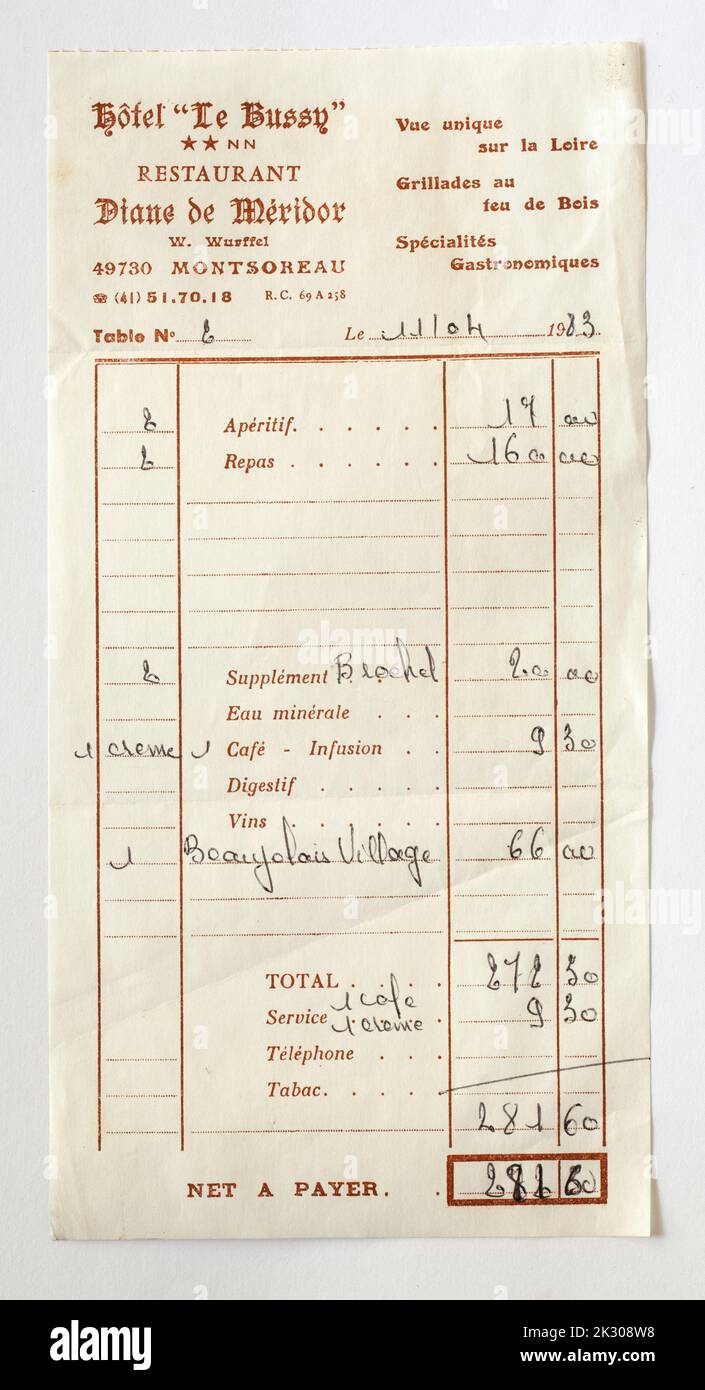 Hôtel “Le Bussy”
★★ NN
RESTAURANT
Diane de Méridor
W. Wurffel
49730 MONTSOREAU
☎ (41) 51.70.18 R.C. 69 A 258
Vue unique
sur la Loire
Grillades au
feu de Bois
Spécialités
Gastronomiques
Table No 2 Le 11/04 1983
2 Apéritif. . . . . . 17 00
2 Repas . . . . . . 160 00
2 Supplément Brochet 20 00
Eau minérale . . .
1 creme 1 Café - Infusion . . 9 30
Digestif . . . . .
Vins . . . . . .
1 Beaujolais Village 66 00
TOTAL . . . . 272 30
1 cafe
Service 1 creme . 9 30
Téléphone . . .
Tabac. . . . .
281 60
NET A PAYER. . 281 60
alamy
alamy
Image ID: 2K308W8
www.alamy.com